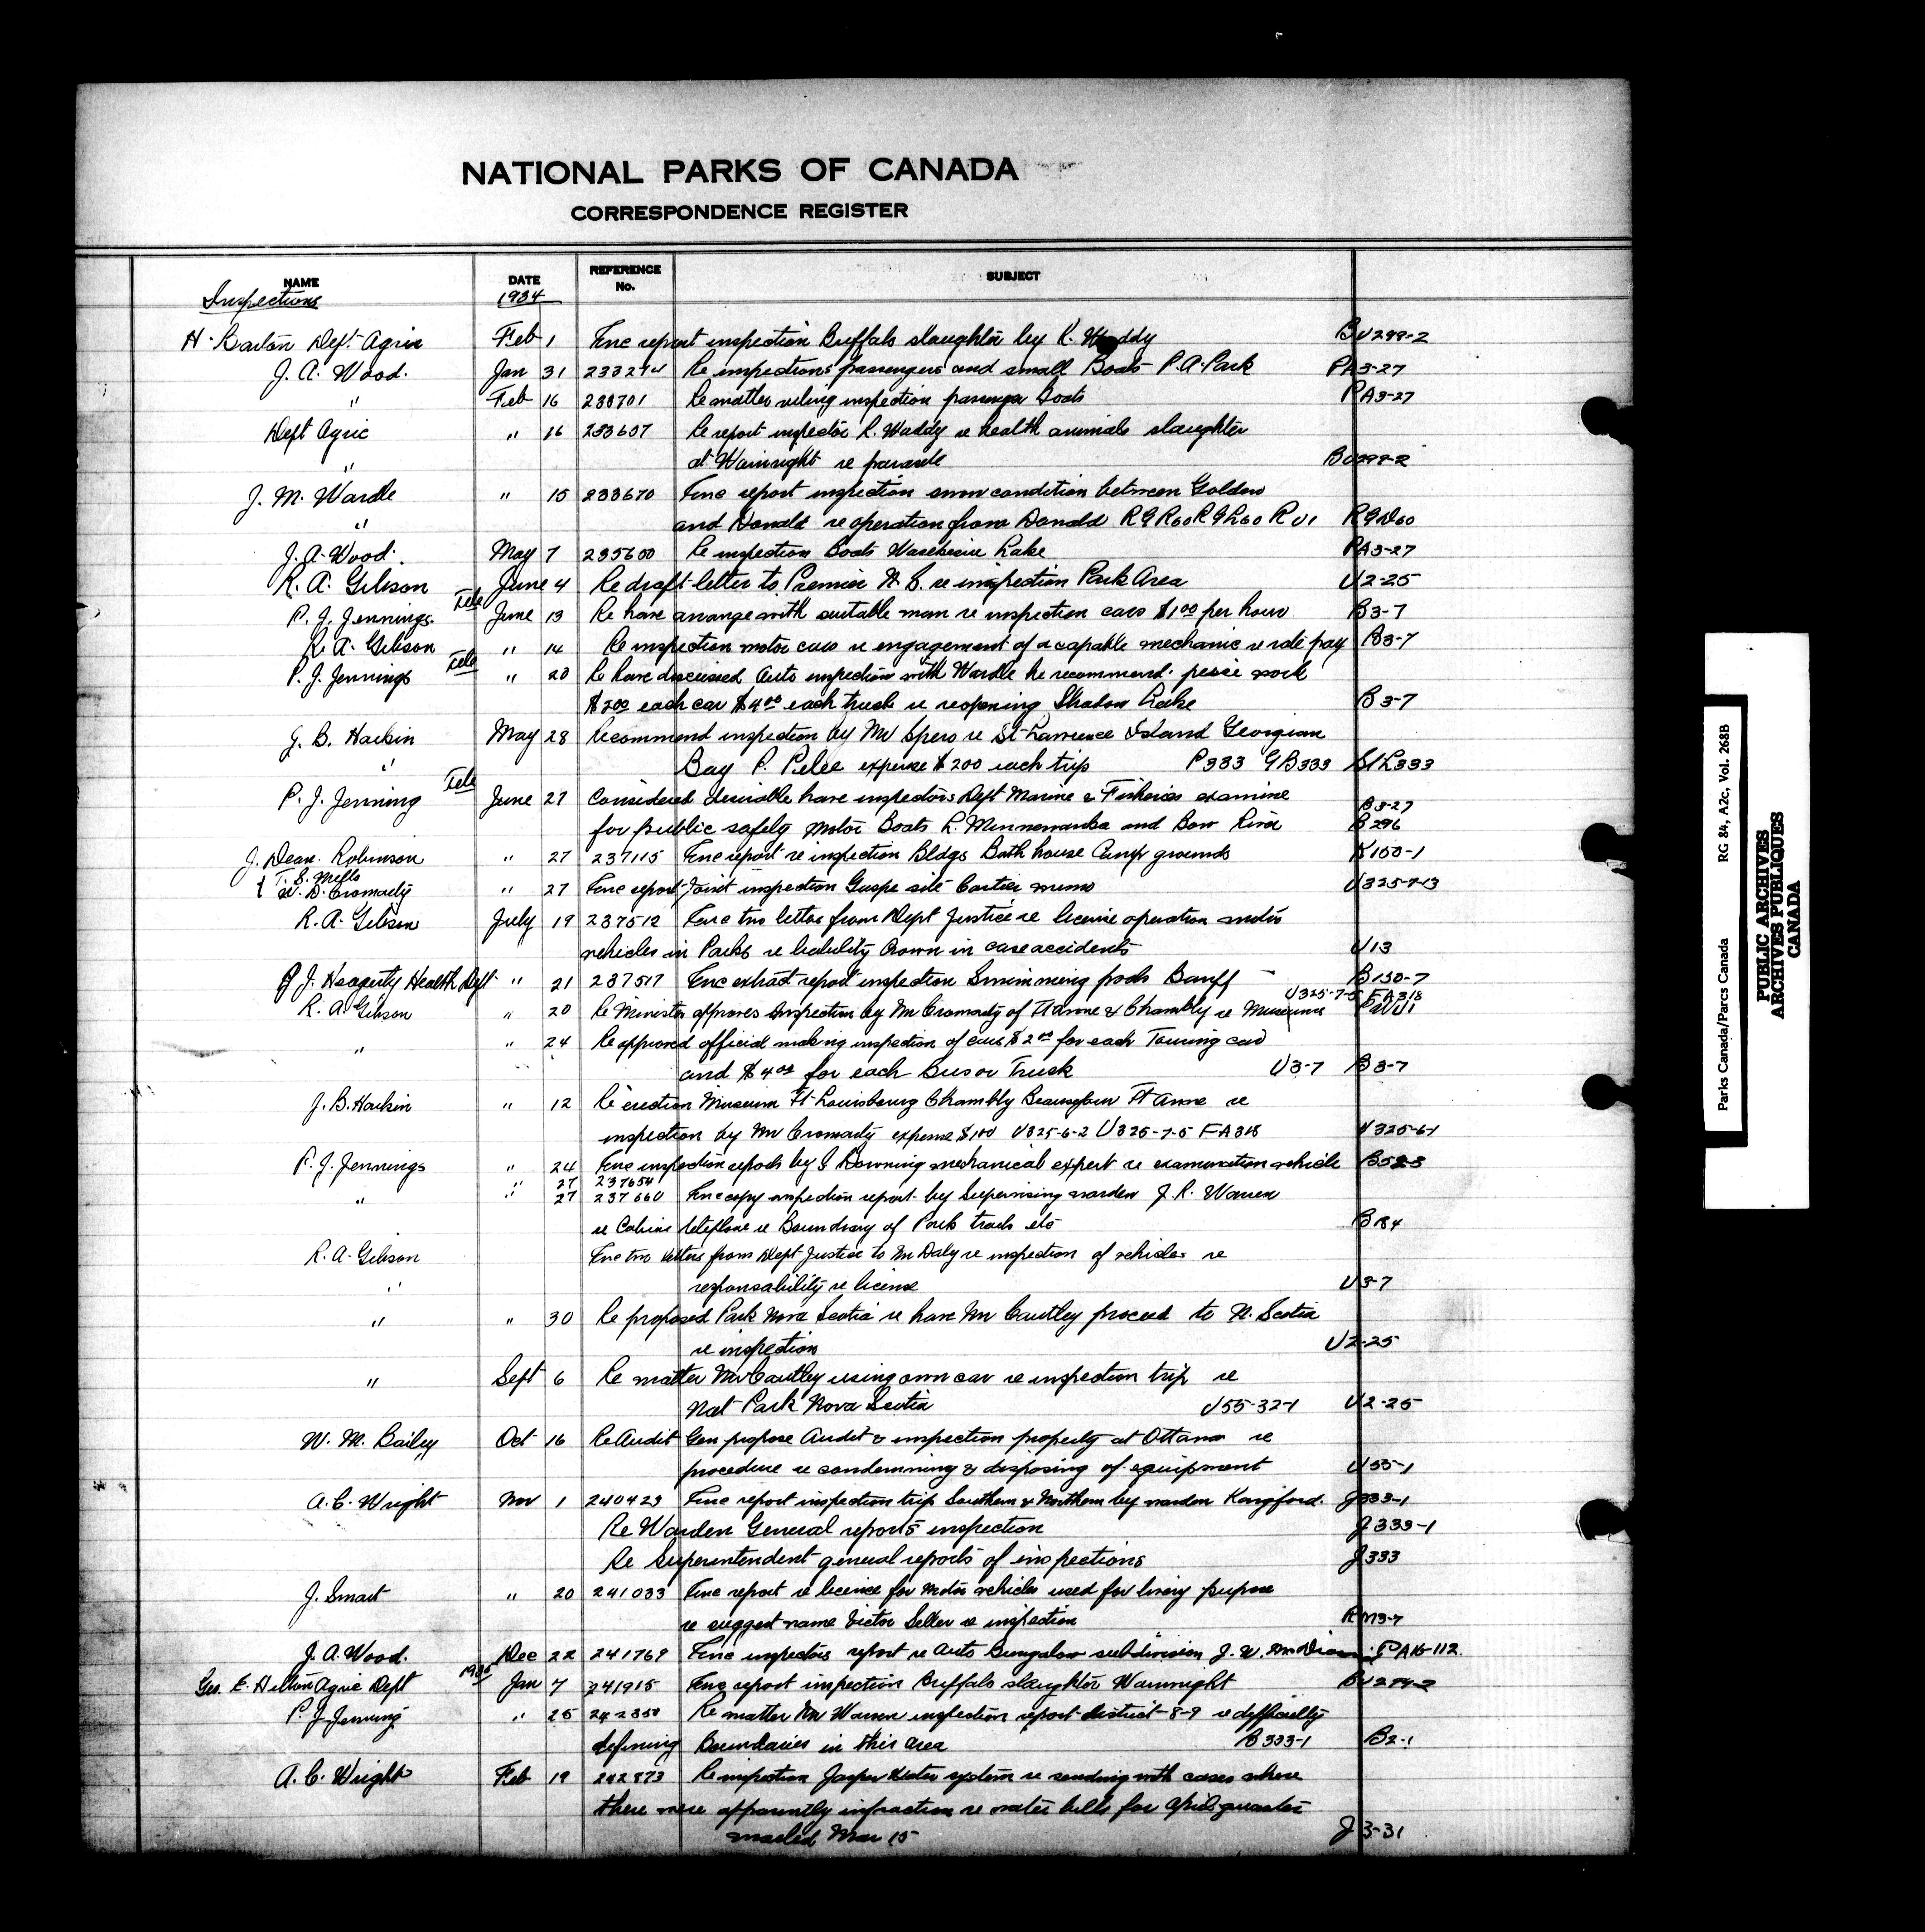 NATIONAL PARKS OF CANADA
CORRESPONDENCE REGISTER
NAME DATE REFERENCE No. SUBJECT
Inspections 1934
H. Barton Dept. Agric Feb 1 Enc report inspection Buffalo slaughter by R. Waddy BU299-2
J. A. Wood. Jan 31 Re inspections passengers and small Boats P.A. Park PA3-27
" Feb 16 Re matter inspection passenger Boats PA3-27
Dept Agric " 16 233607 Re report inspector R. Waddy re health animals slaughter
" at Wainwright re BU299-2
J. M. Wardle " 15 233670 Enc report inspection snow condition between Golden
" and Donald re operation from Donald RGR60 RGL60 RU1
J. A. Wood. May 7 235600 Re inspection Boats Lake PA3-27
R. A. Gibson June 4 Re draft letter to Premier N. S. re inspection Park Area U2-25
P. J. Jennings. Tele June 13 Re have arrange with suitable man re inspection cars $1.00 per hour B3-7
R. A. Gibson " 14 Re inspection motor cars re engagement of a capable mechanic re rate pay B3-7
P. J. Jennings Tele " 20 Re have discussed Auto inspection with Wardle he recommend. piece work
$2.00 each car $4.00 each truck re reopening B3-7
J. B. Harkin May 28 Recommend inspection by Mr Spero re St Lawrence Island Georgian
" Bay P. Pelee expense $200 each trip P333 GB333 StL333
P. J. Jenning Tele June 27 Considered desirable have inspectors Dept Marine & Fisheries examine B3-27
for public safety motor Boats L. Minnewanka and Bow River B296
J. Dean Robinson " 27 237115 Enc report re inspection Bldgs Bath house Camp grounds K150-1
T. S. Mills
& W. D. Cromarty " 27 Enc report Joint inspection Gaspe site Cartier U325-7-13
R. A. Gibson July 19 237512 Enc two letter from Dept Justice re license operation motor
vehicles in Parks re liability Crown in case accidents U13
J. J. Heagerty Health Dept " 21 237517 Enc extract report inspection Swimming pools Banff B130-7
U325-7-5 FA318
R. A. Gibson " 20 Re Minister approves inspection by Mr Cromarty of Ft Anne & Chambly re Museums
" " 24 Re approved official making inspection of cars $2.00 for each Touring car
and $4.00 for each Bus or Truck U3-7 B3-7
J. B. Harkin " 12 Re erection Museum Ft Louisbourg Chambly Beausejour Ft Anne re
inspection by Mr Cromarty expense $100 U325-6-2 U325-7-5 FA318 U325-6-1
P. J. Jennings " 24 Enc inspection reports by Downing mechanical expert re examination vehicle
" 27 237654
" " 27 237660 Enc copy inspection report by Supervising warden J. R. Warren
re Cabins telephone re Boundary of Park trails etc B184
R. A. Gibson Enc two letters from Dept Justice to Mr Daly re inspection of vehicles re
" responsability re license U3-7
" " 30 Re proposed Park Nova Scotia re have Mr Cautley proceed to N. Scotia
re inspection U2-25
" Sept 6 Re matter Mr Cautley using own car re inspection trip re
Nat Park Nova Scotia U55-32-1 U2-25
W. M. Bailey Oct 16 Re Audit Gen propose Audit & inspection property at Ottawa re
procedure re condemning & disposing of equipment U55-1
A. C. Wright Nov 1 240423 Enc report inspection trip Southern & Northern by warden J333-1
Re Warden General reports inspection J333-1
Re Superintendent general reports of inspections J333
J. Smart " 20 241033 Enc report re licence for motor vehicles used for livery purpose
re suggest name Victor Seller re inspection RM3-7
J. A. Wood. Dec 22 241769 Enc inspectors report re Auto Bungalow subdivision J. W. PA16-112.
Geo. E. Hilton Agric Dept 1935 Jan 7 241915 Enc report inspection Buffalo slaughter Wainwright BU299-2
P. J. Jenning " 25 242350 Re matter Mr Warren inspection report district 8-9 re difficulty
defining Boundaries in this area B333-1 B2-1
A. C. Wright Feb 19 242873 Re inspection Jasper Water system re sending with cases where
there were apparently infraction re water bills for April quarter
mailed Mar 15 J3-31
Parks Canada/Parcs Canada RG 84, A2c, Vol. 268B
PUBLIC ARCHIVES
ARCHIVES PUBLIQUES
CANADA